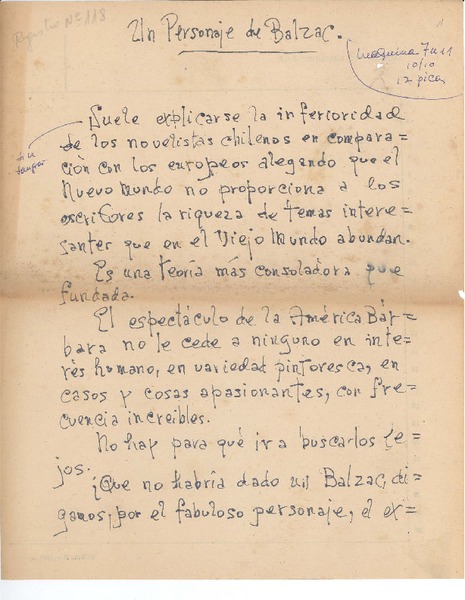 Registro Nº 118
Un Personaje de Balzac.
1
Maquina 7 u 11
10/10
12 picas
Suele explicarse la inferioridad
de los novelistas chilenos en compara=
ción con los europeos alegando que el
Nuevo Mundo no proporciona a los
escritores la riqueza de temas intere=
santes que en el Viejo Mundo abundan.
Es una teoría más consoladora que
fundada.
El espectáculo de la América Bár=
bara no le cede a ninguno en inte=
rés humano, en variedad pintoresca, en
casos y cosas apasionantes, con fre=
cuencia increíbles.
No hay para qué ir a buscarlos le=
jos.
¡Que no habría dado un Balzac, di=
gamos, por el fabuloso personaje, el ex=